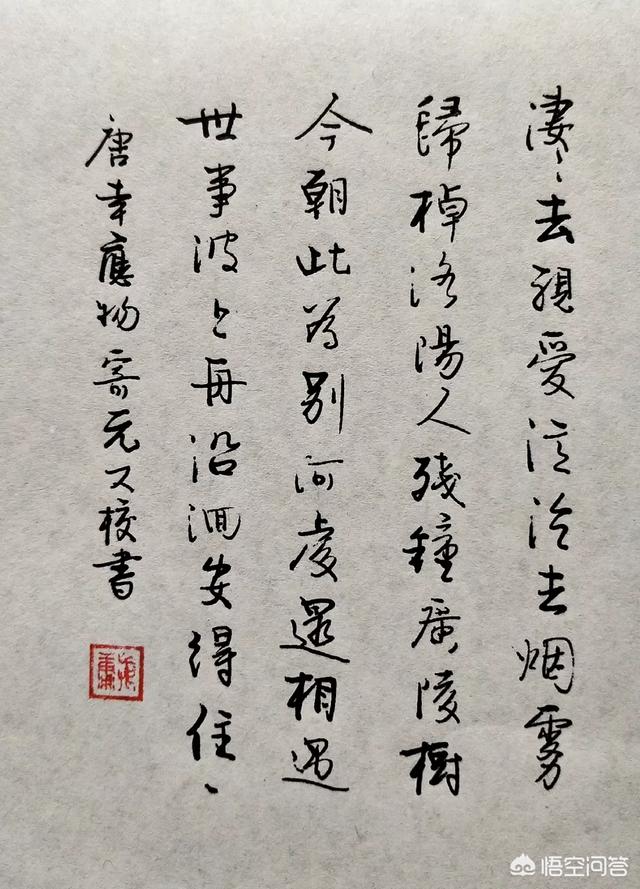 淒〻去親愛泛泛去烟雾
歸棹洛陽人殘鐘廣陵樹
今朝此為别何處還相遇
世事波上舟沿洄安得住、
唐韋應物寄元大校書
悟空问答